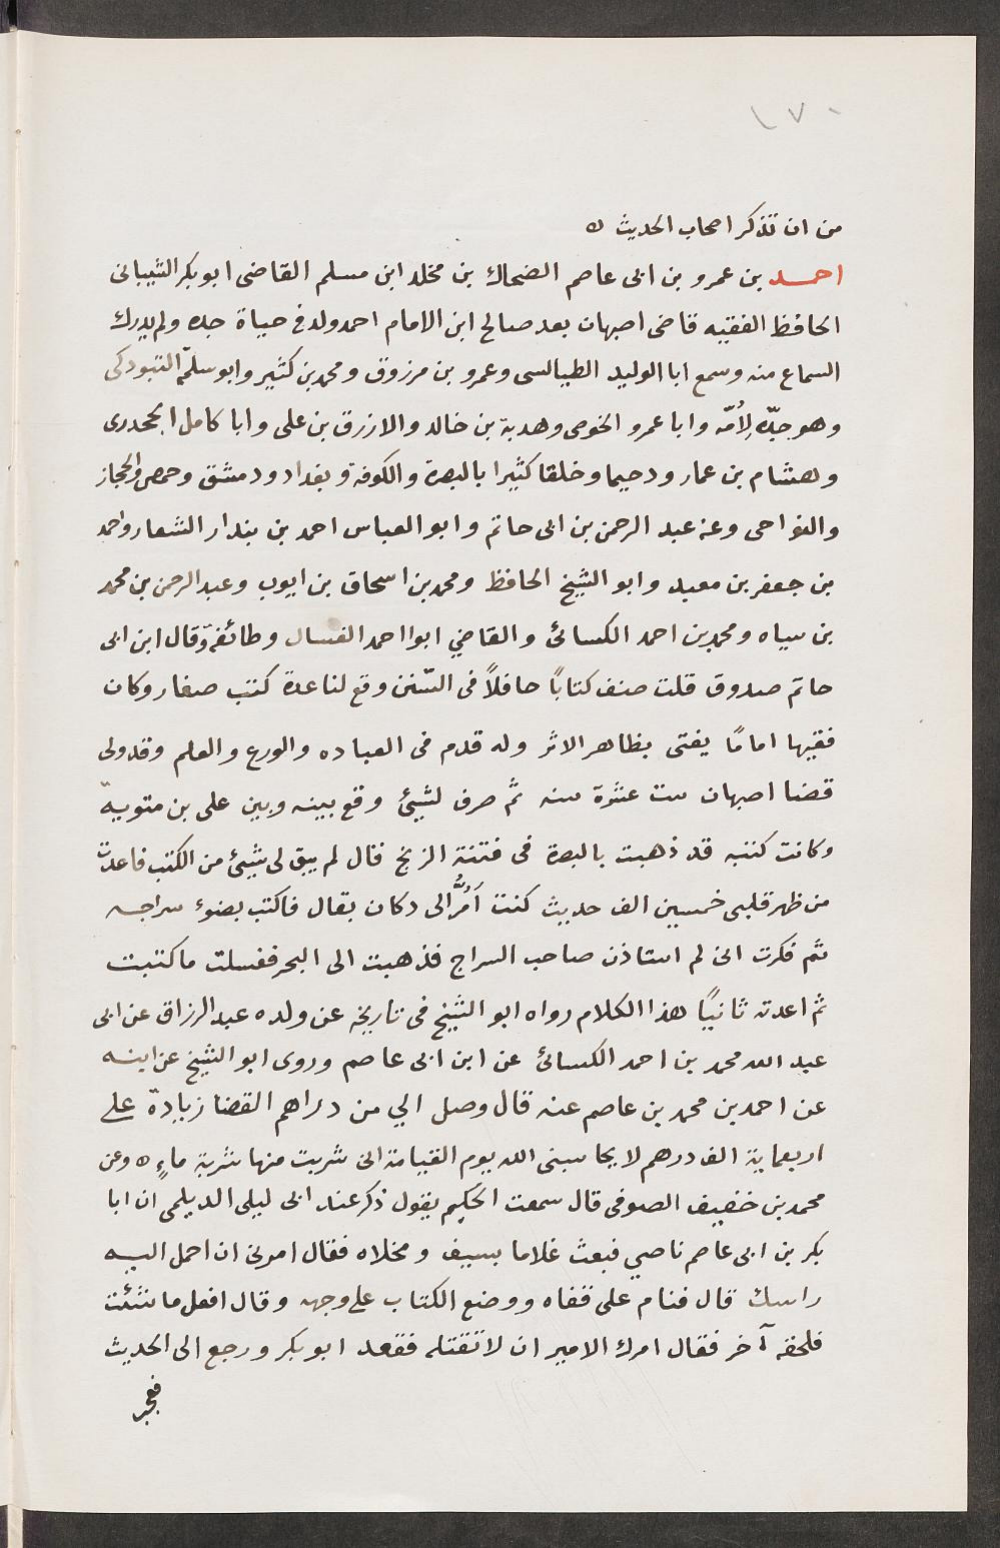 ١٧٠
من ان تذكر اصحاب الحديث ه
احمد بن عمرو بن ابى عاصم الضحاك بن مخلد ابن مسلم القاضى ابو بكر الشيبانى
الحافظ الفقيه قاضى اصبهان بعد صالح ابن الامام احمد ولد فى حياة جده ولم يدرك
السماع منه وسمع ابا الوليد الطيالسى وعمرو بن مرزوق ومحمد بن كثير وابو سلمة التبوذكى
وهو جدّه لِأُمّه وابا عمرو الحوصى وهدبة بن خالد والازرق بن على وابا كامل الجحدرى
وهشام بن عمار ودحيما وخلقا كثيرا بالبصرة والكوفة وبغداد ودمشق وحمص والحجاز
والنواحى وعنه عبد الرحمن بن ابى حاتم وابو العباس احمد بن بندار الشعار واحمد
بن جعفر بن معبد وابو الشيخ الحافظ ومحمد بن اسحاق بن ايوب وعبد الرحمن بن محمد
بن سياه ومحمد بن احمد الكسائى والقاضي ابوا احمد الغسال وطائفة وقال ابن ابى
حاتم صدوق قلت صنف كتابًا حافلاً فى السّنن وقع لنا عدة كتب صغار وكان
فقيها امامًا يفتى بظاهر الاثر وله قدم فى العباده والورع والعلم وقد ولى
قضا اصبهان ست عشرة سنه ثم صرف لشيئ وقع بينه وبين على بن متوية
وكانت كتبه قد ذهبت بالبصرة فى فتنة الزنج قال لم يبق لى شيئ من الكتب فاعدت
من ظهر قلبى خمسين الف حديث كنت اَمُرُّ الى دكان بقال فاكتب بضوء سراجه
ثم فكرت انى لم استاذن صاحب السراج فذهبت الى البحر فغسلت ما كتبت
ثم اعدته ثانيًا هذا الكلام رواه ابو الشيخ فى تاريخه عن ولده عبد الرزاق عن ابى
عبد الله محمد بن احمد الكسائى عن ابن ابى عاصم وروى ابو الشيخ عن ابنه
عن احمد بن محمد بن عاصم عنه قال وصل الي من دراهم القضا زيادة على
اربعماية الف درهم لا يحاسبنى الله يوم القيامة انى شربت منها شربة ماءٍ ه وعن
محمد بن خفيف الصوفى قال سمعت الحكيم يقول ذكر عند ابى ليلى الديلمى ان ابا
بكر بن ابى عاصم ناصبي فبعث غلاما بسيف ومخلاه فقال امرنى ان احمل اليه
راسك قال فنام على قفاه ووضع الكتاب على وجهه وقال افعل ما شئت
فلحقه آخر فقال امرك الامير ان لا تقتله فقعد ابو بكر ورجع الى الحديث